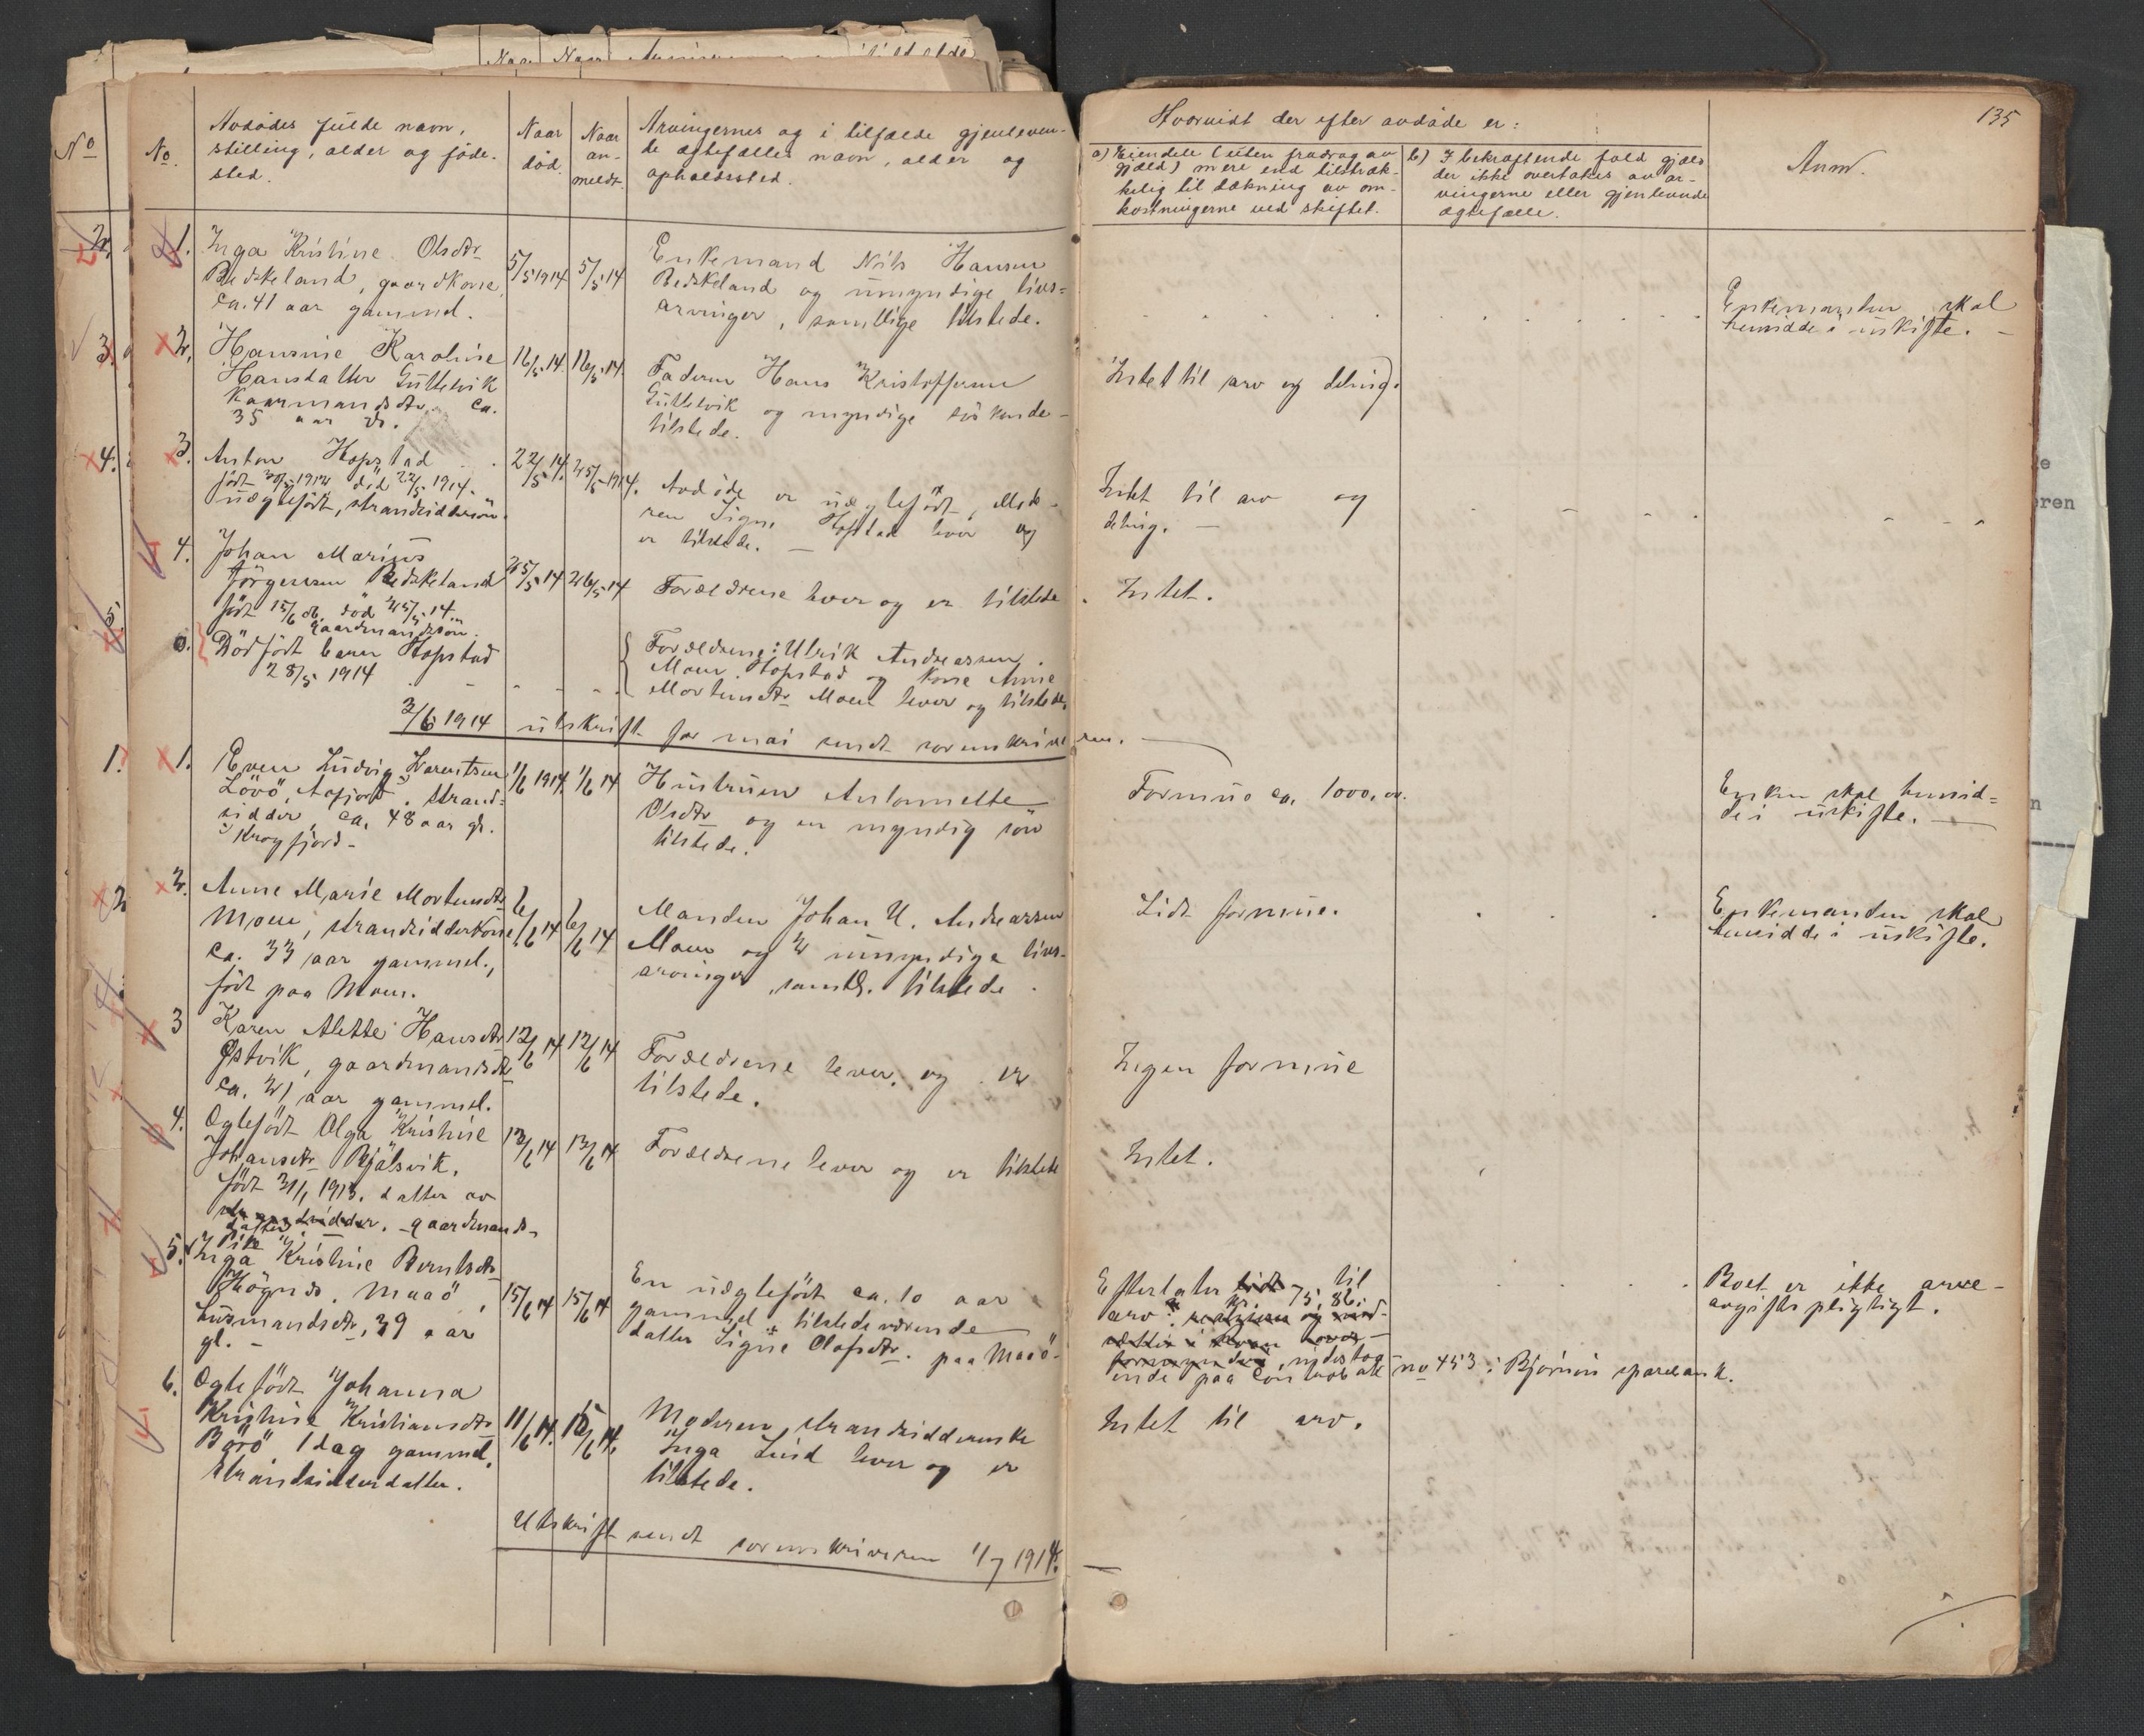 135
No
No.
Avdödes fulde navn,
stilling, alder og föde-
sted.
Naar
död.
Naar
an-
meldt.
Arvingernes og i tilfælde gjenleven-
de ægtefælles navn, alder og
opholdssted.
Hvorvidt der efter avdöde er:
a) Eiendele (uten fradrag av
gjæld) mere end tilstræk-
kelig til dækning av om-
kostningerne ved skiftet.
b) I bekræftende fald gjæld
der ikke overtakes av ar-
vingerne eller gjenlevende
ægtefælle.
Anm.
1. Inga Kristine Olsdtr
Bedskeland, gaardkone,
ca. 41 aar gammel.
5/5 1914
5/5 14
Enkemand Nils Hansen
Bedskeland og umyndige livs-
arvinger, samtlige tilstede.
Enkemanden skal
hensidde i uskifte.
2. Hansine Karoline
Hansdatter Guttelvik
kaarmandsdtr. ca.
35 aar gl.
16/5 14
16/5 14
Faderen Hans Kristoffersen
Guttelvik og myndige söskende
tilstede.
Intet til arv og deling.
3. Anton Hopstad
födt 20/5 1914 död 22/5 1914.
uægtefödt, strandsiddersön.
22/5 14.
25/5 1914.
Avdöde er uægtefödt, Mode-
ren Signe Hopstad lever og
er tilstede.
Intet til arv og
deling.
4. Johan Marius
Jörgensen Bedskeland
födt 15/6 06, död 25/5 14.
gaardmandssön.
25/5 14
26/5 14
Forældrene lever og er tilstede.
Intet.
0. Dödfödt barn Hopstad
28/5 1914
Forældrene: Ulrik Andreassen
Moen Hopstad og kone Anne
Mortensdtr Moen lever og tilstede.
2/6 1914 utskrift for mai sendt sorenskriveren.
1. Even Ludvig Lorentsen
Lövö, Aafjord, strand-
sidder, ca. 48 aar gl.
Krogfjord
1/6 1914.
1/6 14
Hustruen Antonette
Olsdtr og en myndig sön
tilstede.
Formue ca. 1000,00.
Enken skal hensid-
de i uskifte.
2. Anne Marie Mortensdtr
Moen, strandsidderkone
ca. 33 aar gammel,
födt paa Moen.
6/6 14
6/6 14
Manden Johan U. Andreassen
Moen og 2 umyndige livs-
arvinger, samtl. tilstede.
Lidt formue.
Enkemanden skal
hensidde i uskifte.
3 Karen Alette Hansdtr
Östvik, gaardmandsdtr
ca. 21 aar gammel.
12/6 14
12/6 14
Forældrene lever og er
tilstede.
Ingen formue
4. Ægtefödt Olga Kristine
Johansdtr Bjälsvik,
födt 31/1 1913, datter av
strandsidder. gaardmands-
datter.
13/6 14
13/6 14
Forældrene lever og er tilstede
Intet.
5. Pike
Inga Kristine Berntsdtr
Högnes, Maaö,
husmandsdtr, 39 aar
gl.
15/6 14
15/6 14
En uægtefödt ca. 10 aar
gammel, tilstedeværende
datter Signe Olafsdtr. paa Maaö
Efterlater lidt til
arv kr. 75,86,
indestaa-
ende paa kontrabok no 453 i Björnör sparebank.
Boet er ikke arve-
avgiftspligtigt.
6. Ægtefödt Johanna
Kristine Kristiansdtr
Börö 1 dag gammel,
strandsidderdatter.
11/6 14.
15/6 14.
Moderen, strandsidderenke
Inga Lund lever og er
tilstede.
Intet til arv.
Utskrift sendt sorenskriveren 1/7 1914.